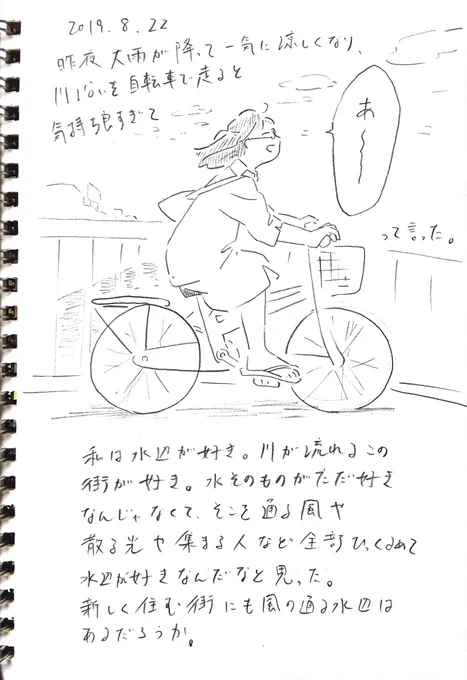 2019.8.22
昨夜 大雨が降って一気に涼しくなり、
川沿いを自転車で走ると
気持ち良すぎて
あ〜〜
って言った。
私は水辺が好き。川が流れるこの
街が好き。水そのものがただ好き
なんじゃなくて、そこを通る風や
散る光や集まる人など全部ひっくるめて
水辺が好きなんだなと思った。
新しく住む街にも風の通る水辺は
あるだろうか。